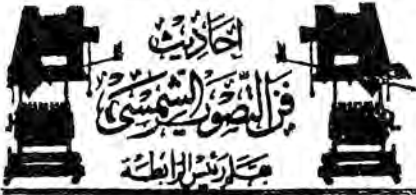 احاديث
فن التصوير الشمسي
بقلم رئيس الرابطة